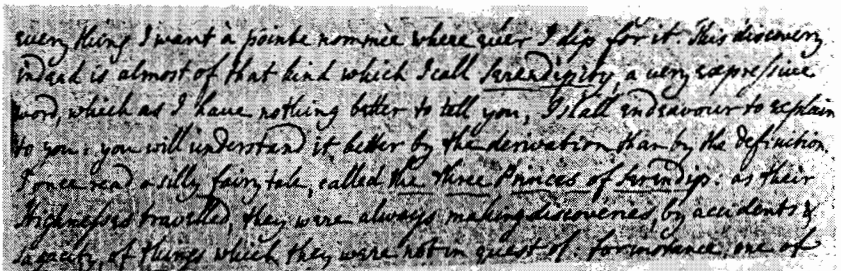 every thing I want à pointe nommèe where ever I dip for it. This discovery
indeed is almost of that kind which I call Serendipity, a very expressive
word, which as I have nothing better to tell you, I shall endeavour to explain
to you: you will understand it better by the derivation than by the definition.
I once read a silly fairy tale, called the three Princes of Serendip: as their
Highnesses travelled, they were always making discoveries, by accidents &
sagacity, of things which they were not in quest of: for instance, one of